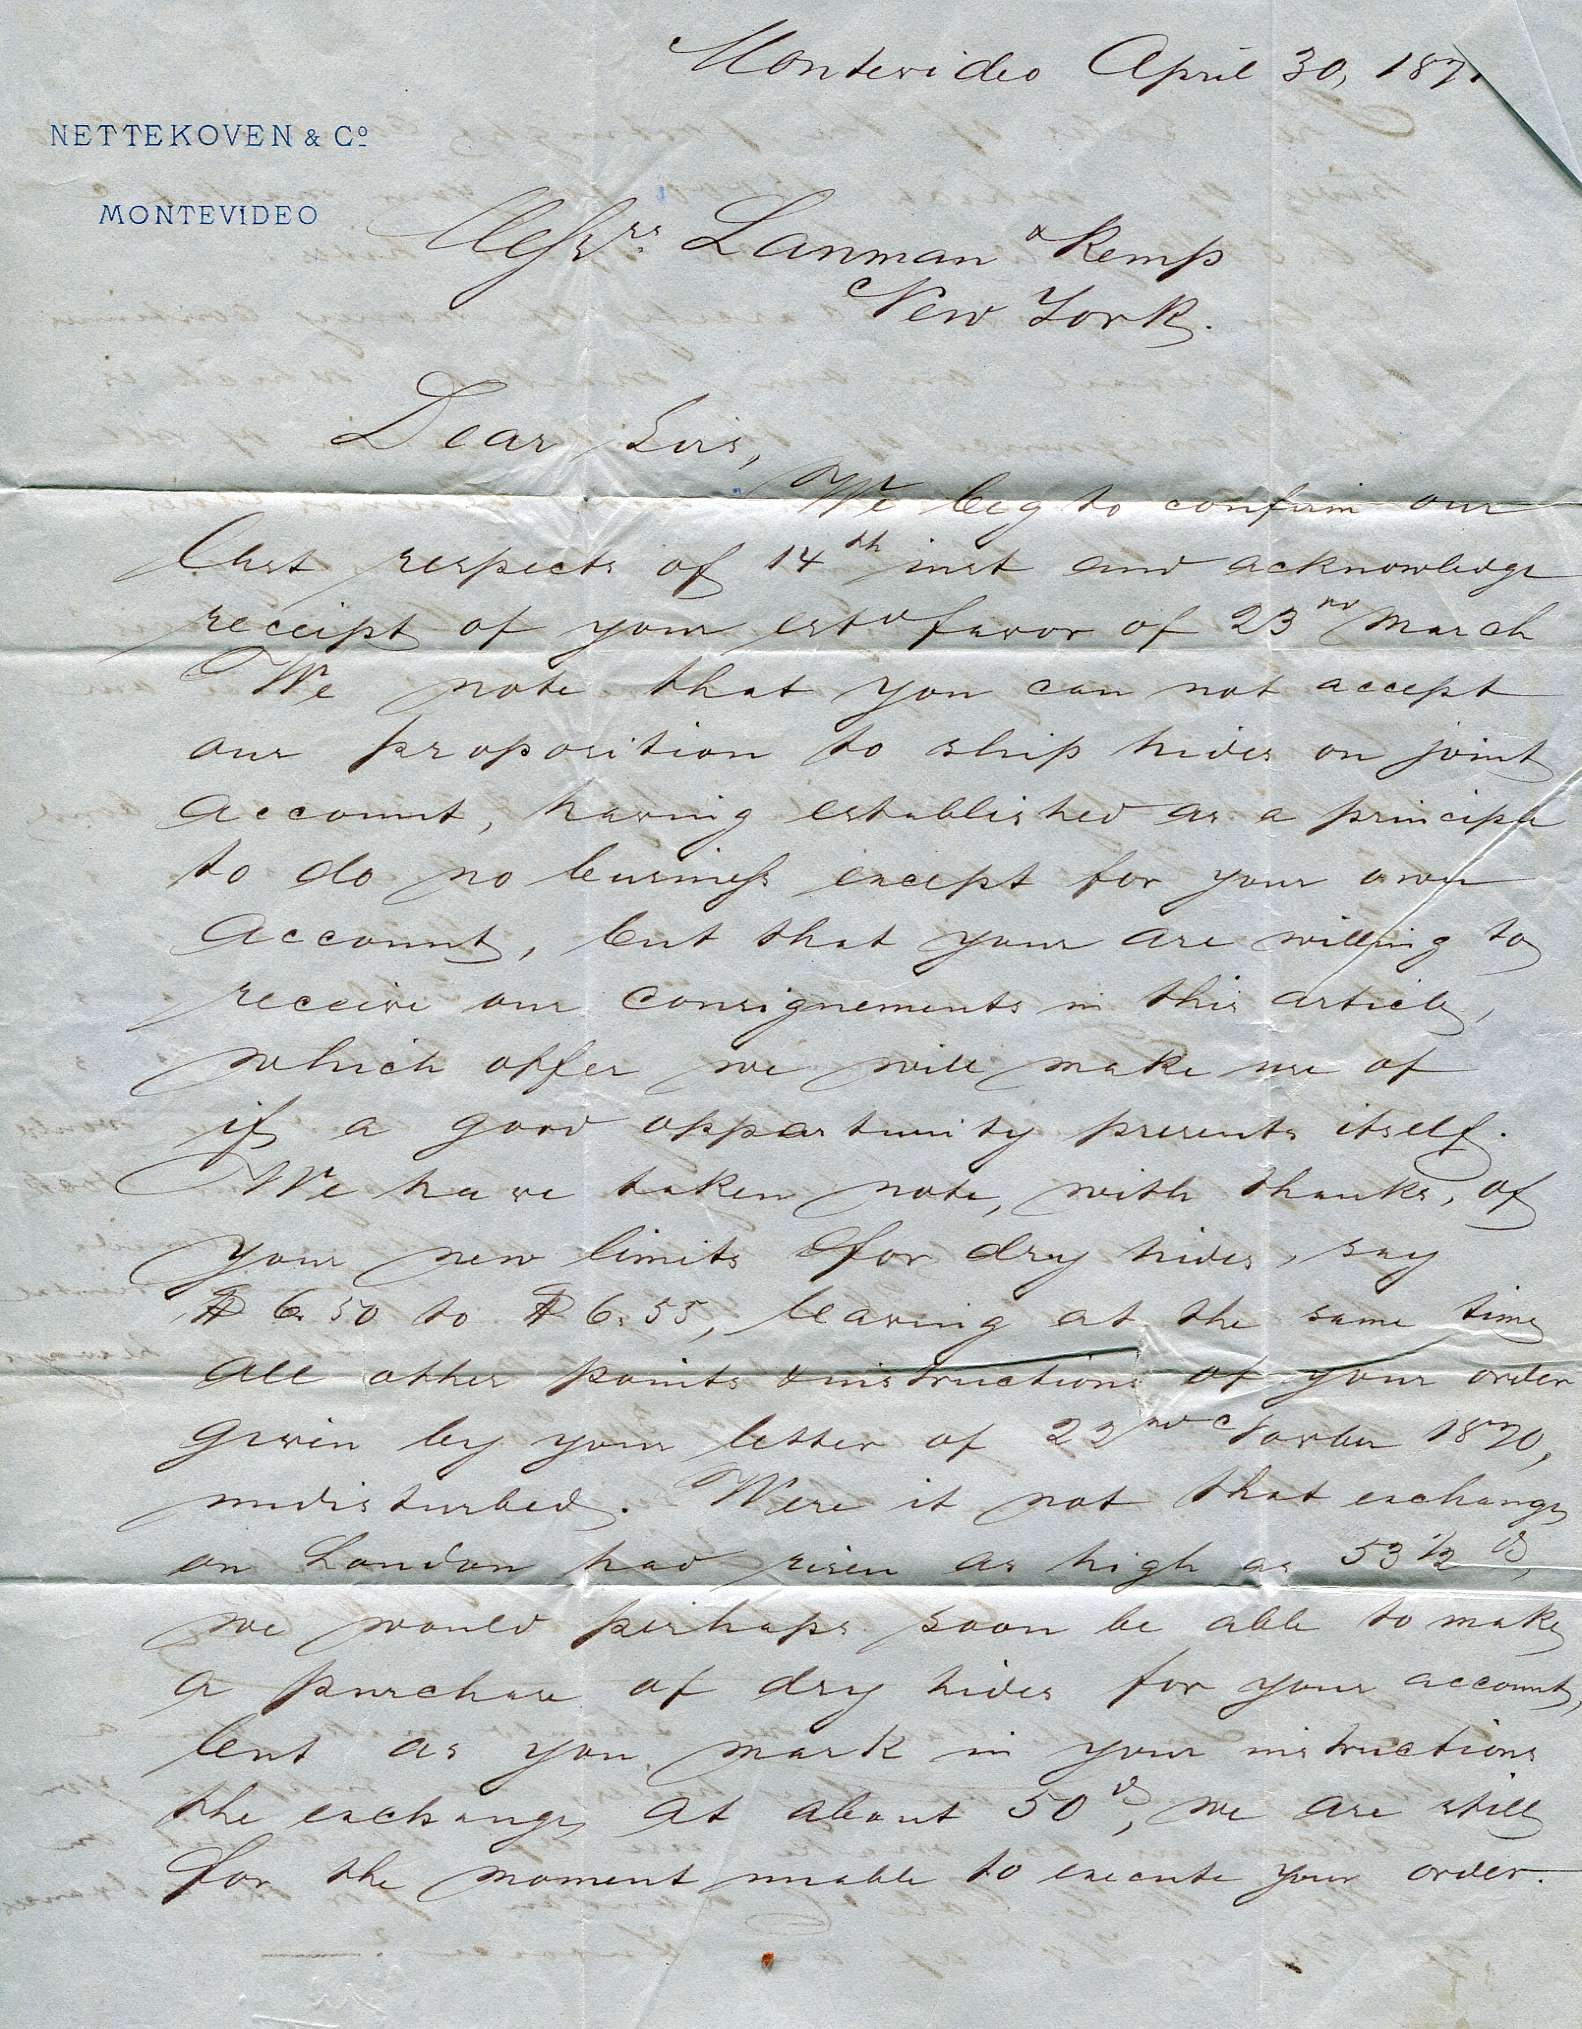 Montevideo April 30, 1871
NETTEKOVEN & Cº
MONTEVIDEO
Messrs. Lanman & Kemp
New York.
Dear Sirs,
We beg to confirm our
last respects of 14th inst and acknowledge
receipt of your estd favor of 23rd March
We note that you can not accept
our proposition to ship hides on joint
account, having established as a principa
to do no business except for your own
account, but that your are willing to
receive our consignements in this article,
which offer we will make use of
if a good opportunity presents itself.
We have taken note, with thanks, of
your new limits for dry hides, say
$ 6.50 to $ 6.55, leaving at the same time
all other points & instructions of your order
given by your letter of 22nd Novber 1870,
undisturbed. Were it not that exchange
on London had risen as high as 53 1/2 d,
we would perhaps soon be able to make
a purchase of dry hides for your account,
but as you mark in your instructions
the exchange at about 50 d, we are still
for the moment unable to execute your order.